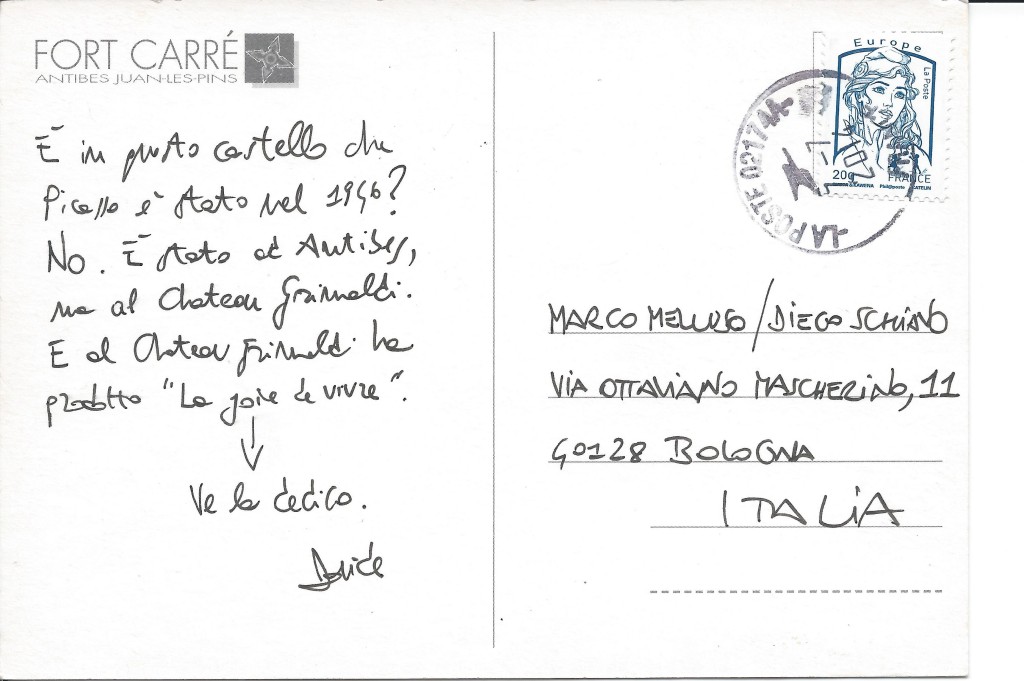 FORT CARRÉ
ANTIBES JUAN-LES-PINS
È in questo castello che
Picasso è stato nel 1946?
No. È stato ad Antibes,
ma al Chateau Grimaldi.
E al Chateau Grimaldi ha
prodotto "La joie de vivre".
Ve la dedico.
Davide
Europe
La Poste
20g
FRANCE
Phil@poste
LA POSTE 02174A
MARCO MELLUSO/DIEGO SCHIANO
VIA OTTAVIANO MASCHERINO, 11
40128 BOLOGNA
ITALIA